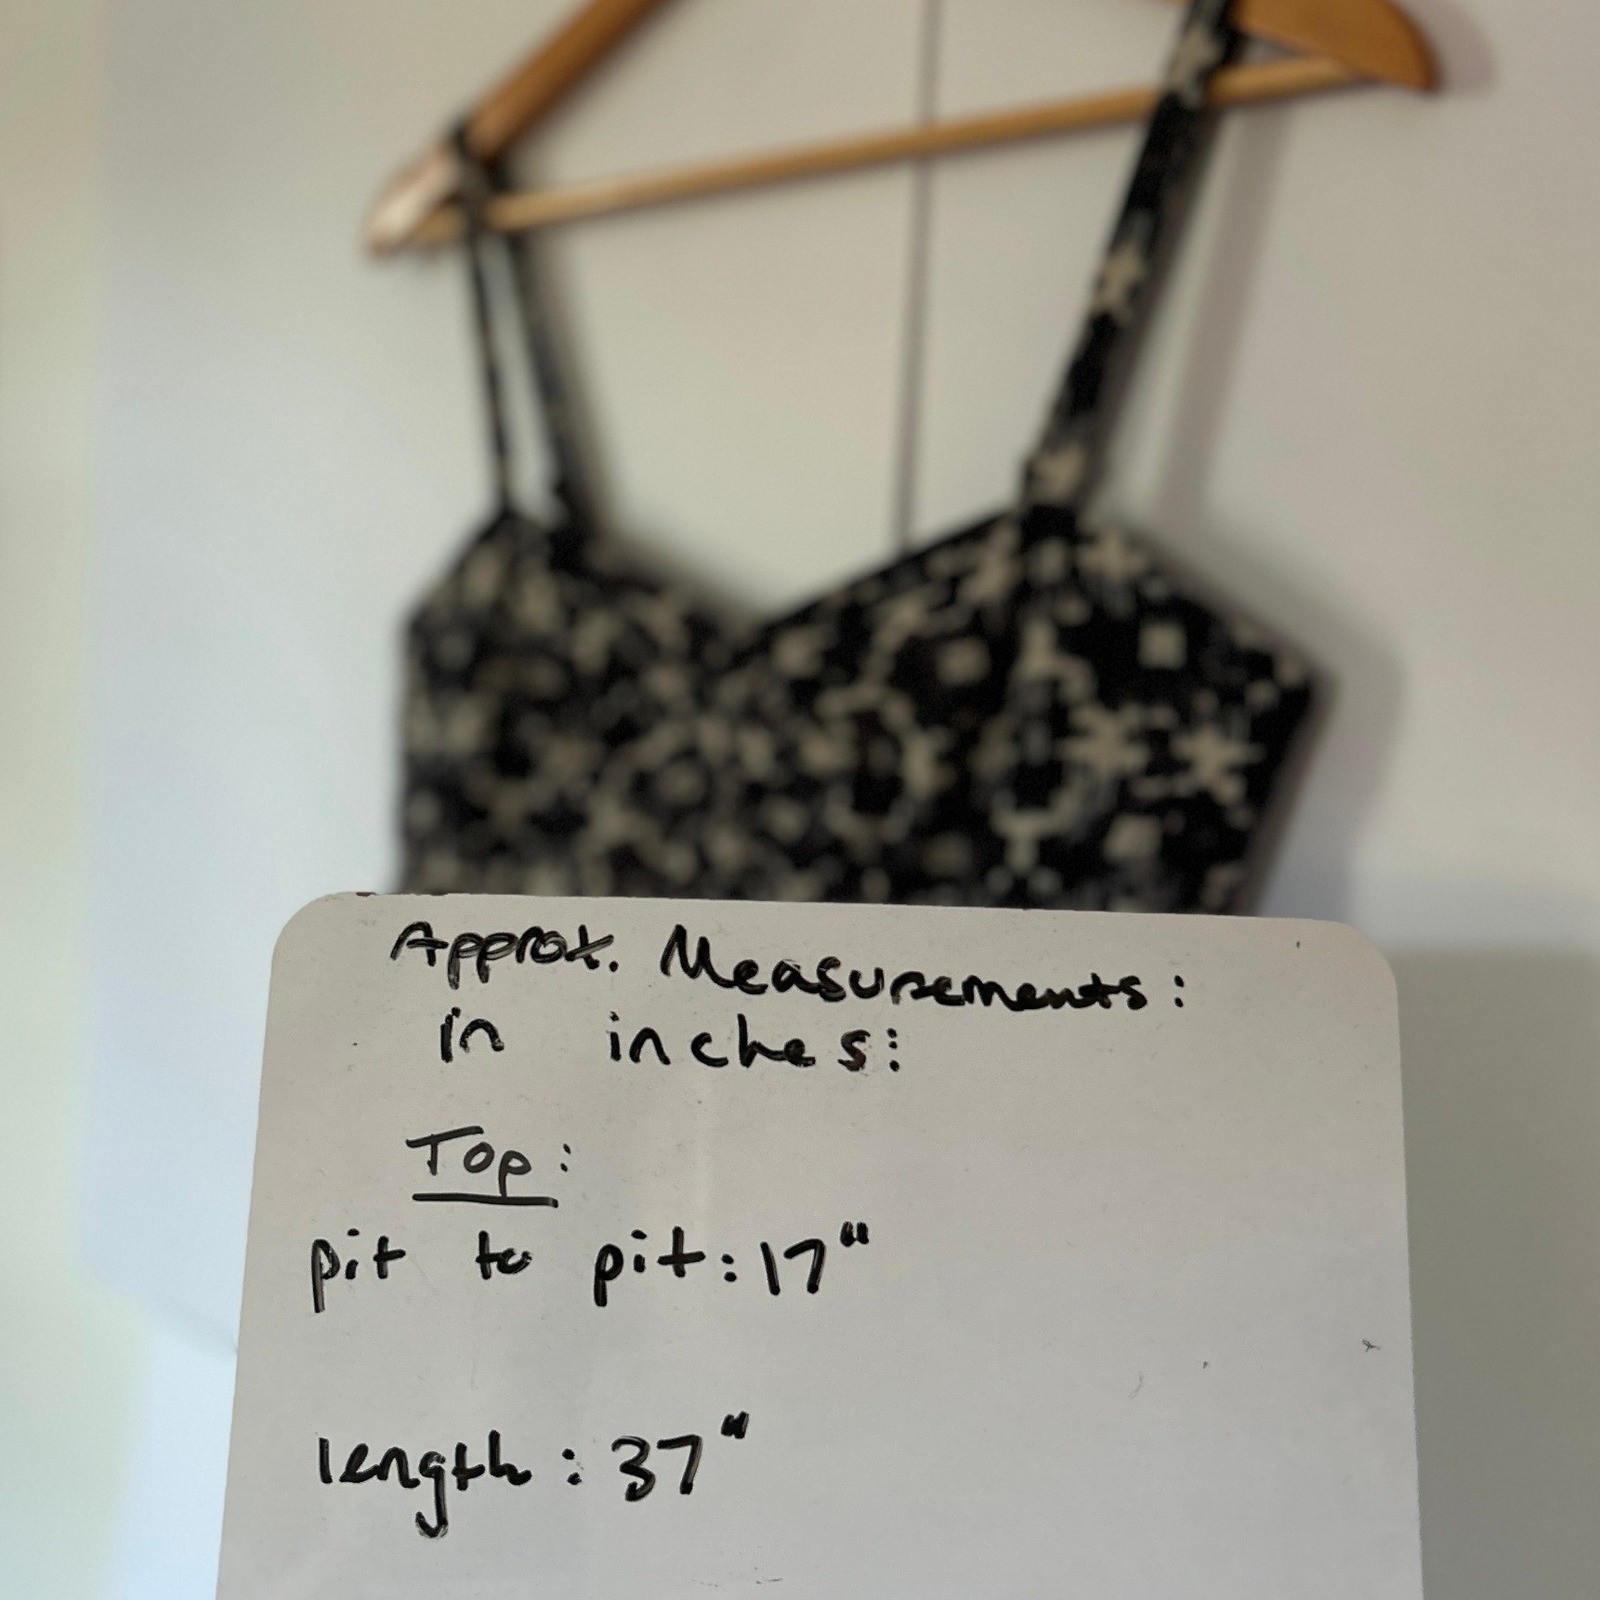 Approx. Measurements:
in inches:
Top:
pit to pit: 17"
length: 37"